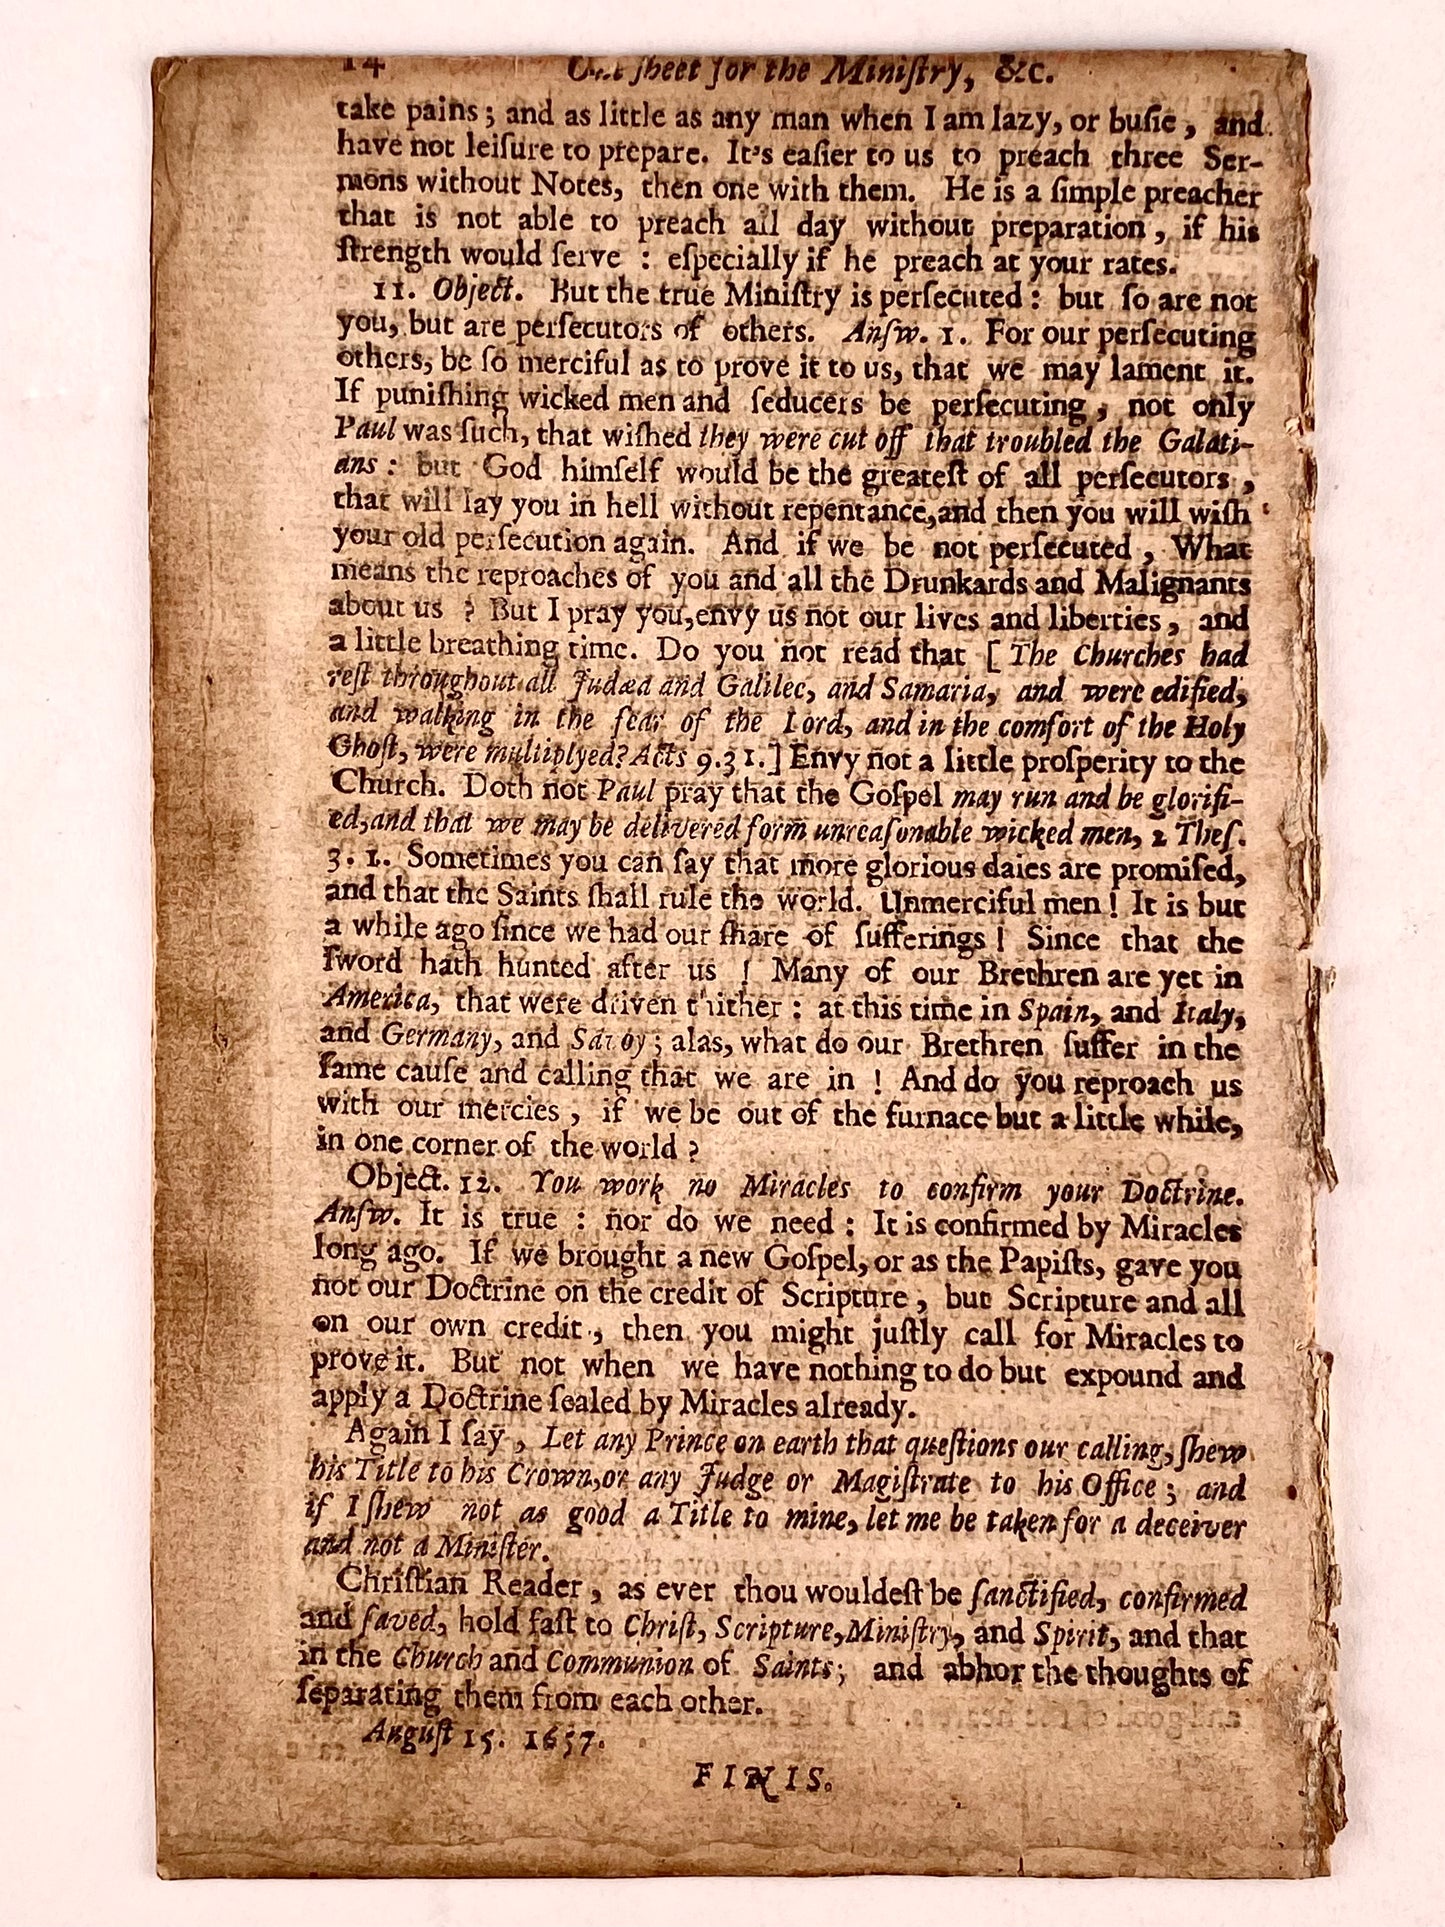 14 One ſheet for the Miniſtry, &c.
take pains; and as little as any man when I am lazy, or buſie, and
have not leiſure to prepare. It's eaſier to us to preach three Ser-
mons without Notes, then one with them. He is a ſimple preacher
that is not able to preach all day without preparation, if his
ſtrength would ſerve : eſpecially if he preach at your rates.
11. Object. But the true Miniſtry is perſecuted : but ſo are not
you, but are perſecutors of others. Anſw. 1. For our perſecuting
others, be ſo merciful as to prove it to us, that we may lament it.
If puniſhing wicked men and ſeducers be perſecuting, not only
Paul was ſuch, that wiſhed they were cut off that troubled the Galati-
ans : but God himſelf would be the greateſt of all perſecutors,
that will lay you in hell without repentance,and then you will wiſh
your old perſecution again. And if we be not perſecuted, What
means the reproaches of you and all the Drunkards and Malignants
about us ? But I pray you,envy us not our lives and liberties, and
a little breathing time. Do you not read that [ The Churches had
reſt throughout all Judæa and Galilee, and Samaria, and were edified,
and walking in the fear of the Lord, and in the comfort of the Holy
Ghoſt, were multiplyed? Acts 9.31.] Envy not a little proſperity to the
Church. Doth not Paul pray that the Goſpel may run and be glorifi-
ed,and that we may be delivered form unreaſonable wicked men, 2 Theſ.
3. 1. Sometimes you can ſay that more glorious daies are promiſed,
and that the Saints ſhall rule the world. Unmerciful men ! It is but
a while ago ſince we had our ſhare of ſufferings ! Since that the
ſword hath hunted after us ! Many of our Brethren are yet in
America, that were driven thither : at this time in Spain, and Italy,
and Germany, and Savoy ; alas, what do our Brethren ſuffer in the
ſame cauſe and calling that we are in ! And do you reproach us
with our mercies, if we be out of the furnace but a little while,
in one corner of the world ?
Object. 12. You work no Miracles to confirm your Doctrine.
Anſw. It is true : nor do we need : It is confirmed by Miracles
long ago. If we brought a new Goſpel, or as the Papiſts, gave you
not our Doctrine on the credit of Scripture, but Scripture and all
on our own credit, then you might juſtly call for Miracles to
prove it. But not when we have nothing to do but expound and
apply a Doctrine ſealed by Miracles already.
Again I ſay, Let any Prince on earth that queſtions our calling, ſhew
his Title to his Crown,or any Judge or Magiſtrate to his Office ; and
if I ſhew not as good a Title to mine, let me be taken for a deceiver
and not a Miniſter.
Chriſtian Reader, as ever thou wouldeſt be ſanctified, confirmed
and ſaved, hold faſt to Chriſt, Scripture,Miniſtry, and Spirit, and that
in the Church and Communion of Saints; and abhor the thoughts of
ſeparating them from each other.
Auguſt 15. 1657.
FINIS.